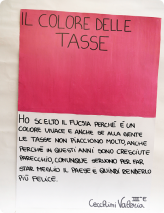 IL COLORE DELLE
TASSE
HO SCELTO IL FUCSIA PERCHÉ È UN
COLORE VIVACE E ANCHE SE ALLA GENTE
LE TASSE NON PIACCIONO MOLTO, ANCHE
PERCHÉ IN QUESTI ANNI SONO CRESCIUTE
PARECCHIO, COMUNQUE SERVONO PER FAR
STAR MEGLIO IL PAESE E QUINDI RENDERLO
PIÙ FELICE.
III E
Cecchini Valeria